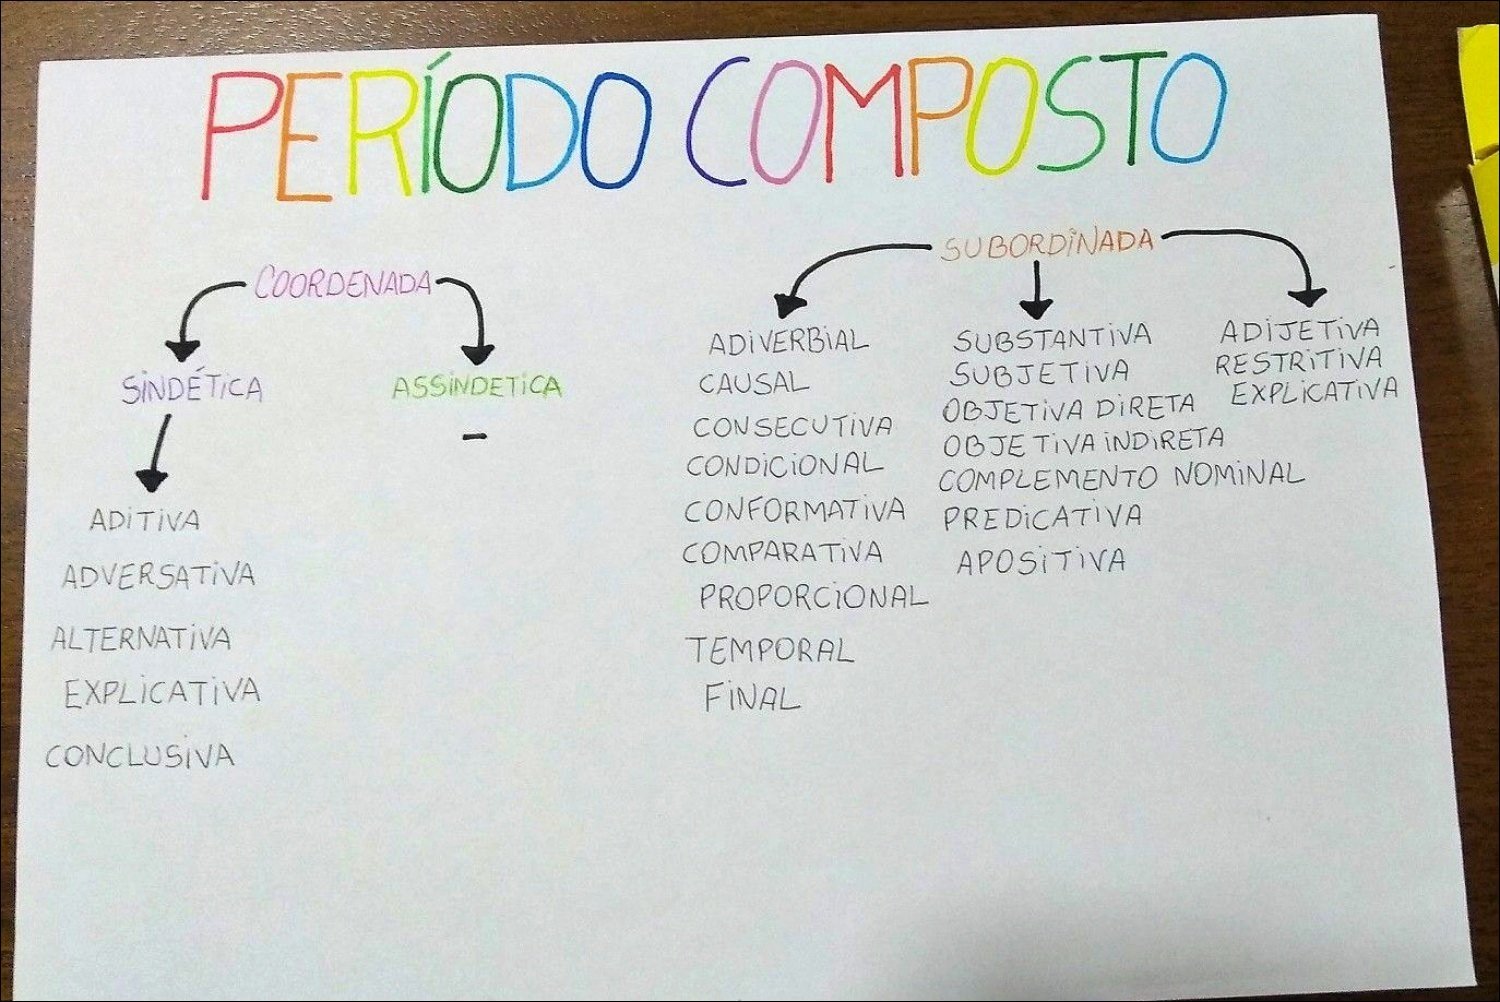 PERÍODO COMPOSTO
COORDENADA
SINDÉTICA
ADITIVA
ADVERSATIVA
ALTERNATIVA
EXPLICATIVA
CONCLUSIVA
ASSINDETICA
-
SUBORDINADA
ADIVERBIAL
CAUSAL
CONSECUTIVA
CONDICIONAL
CONFORMATIVA
COMPARATIVA
PROPORCIONAL
TEMPORAL
FINAL
SUBSTANTIVA
SUBJETIVA
OBJETIVA DIRETA
OBJETIVA INDIRETA
COMPLEMENTO NOMINAL
PREDICATIVA
APOSITIVA
ADIJETIVA
RESTRITIVA
EXPLICATIVA